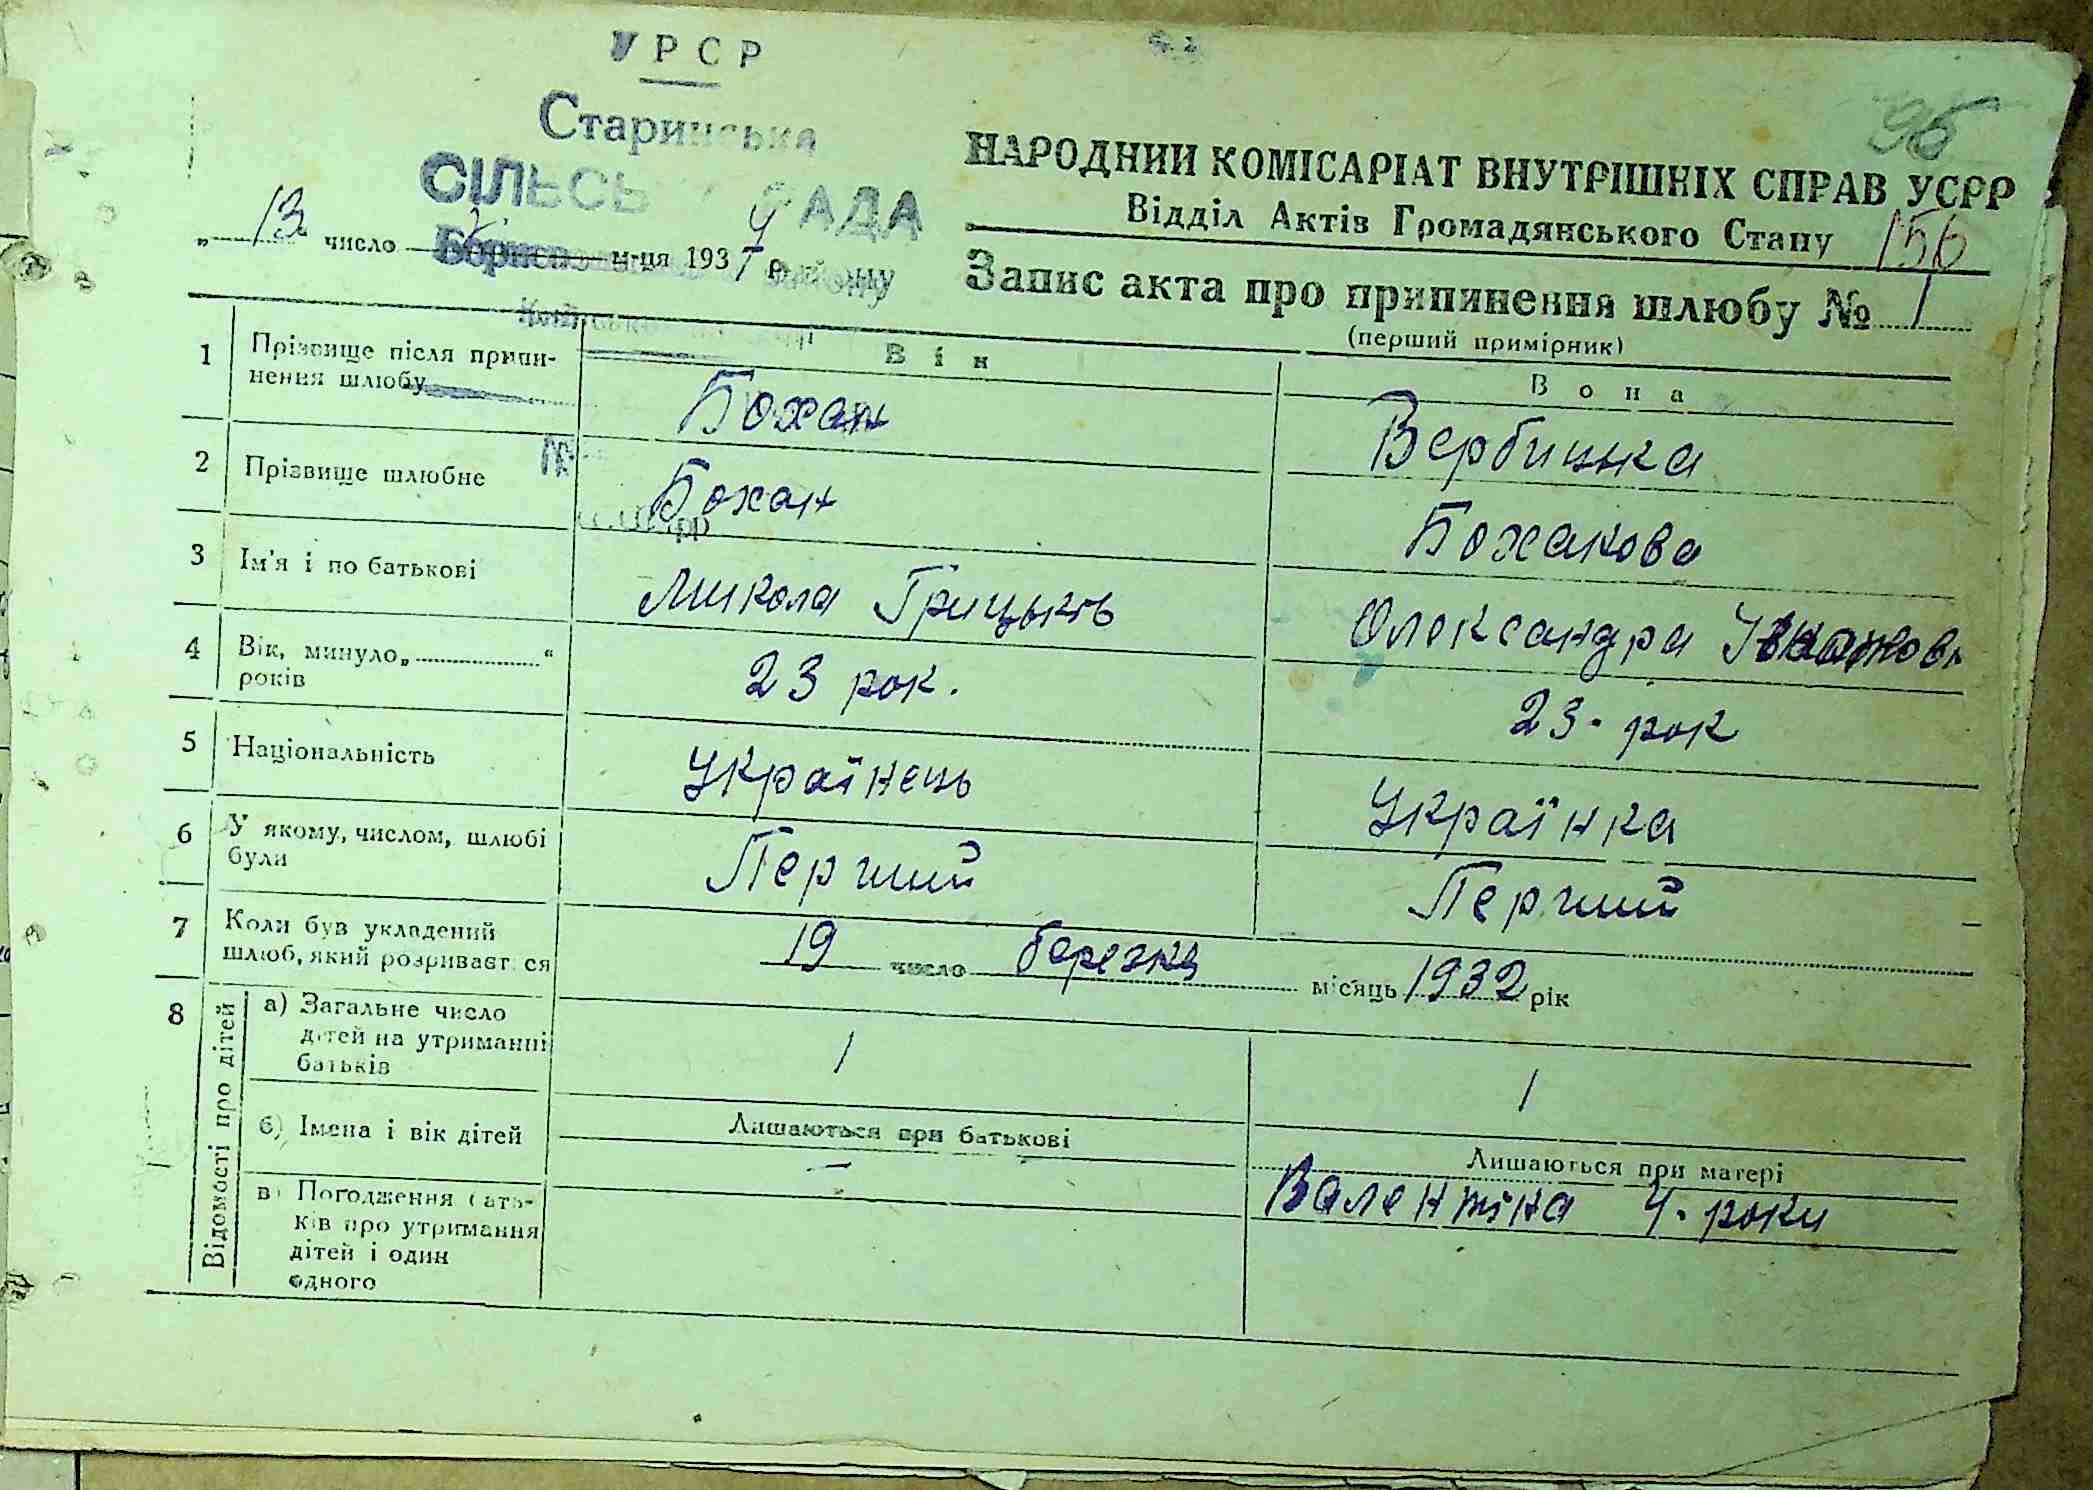 УРСР
Старинська
СІЛЬСЬКА РАДА
95
НАРОДНИЙ КОМІСАРІАТ ВНУТРІШНІХ СПРАВ УСРР
Відділ Актів Громадянського Стану 156
„ 13 число м-ця 193 р.
Запис акта про припинення шлюбу № 1
(перший примірник)
Він Вона
1 Прізвище після припинення шлюбу Бохан Вербицька
2 Прізвище шлюбне Бохан Боханова
3 Ім'я і по батькові Микола Грицьків Олександра
4 Вік, минуло „ “ років 23 рок. 23. рок
5 Національність Українець Українка
6 У якому, числом, шлюбі були Перший Перший
7 Коли був укладений шлюб, який розривається 19 число березня місяць 1932 рік
8 Відомості про дітей
а) Загальне число дітей на утриманні батьків 1 1
б) Імена і вік дітей Лишаються при батькові Лишаються при матері
— Валентіна 4. роки
в) Погодження батьків про утримання дітей і один одного